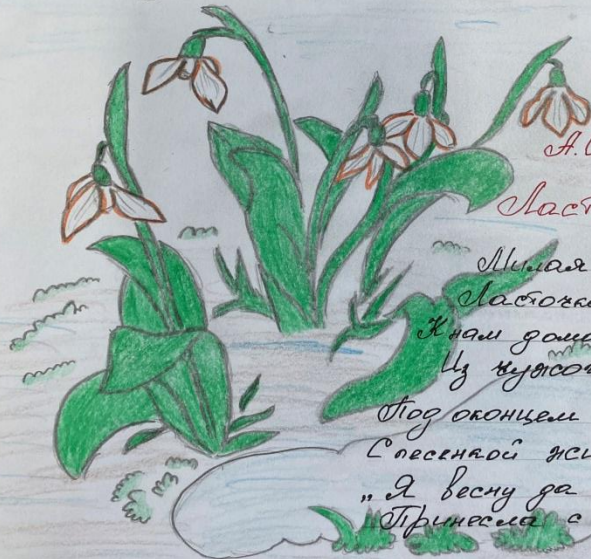 А.
Ласт
Милая
Ласточка
К нам дома
Из чужо
Под оконцем
С песенкой жи
„Я весну да
Принесла с